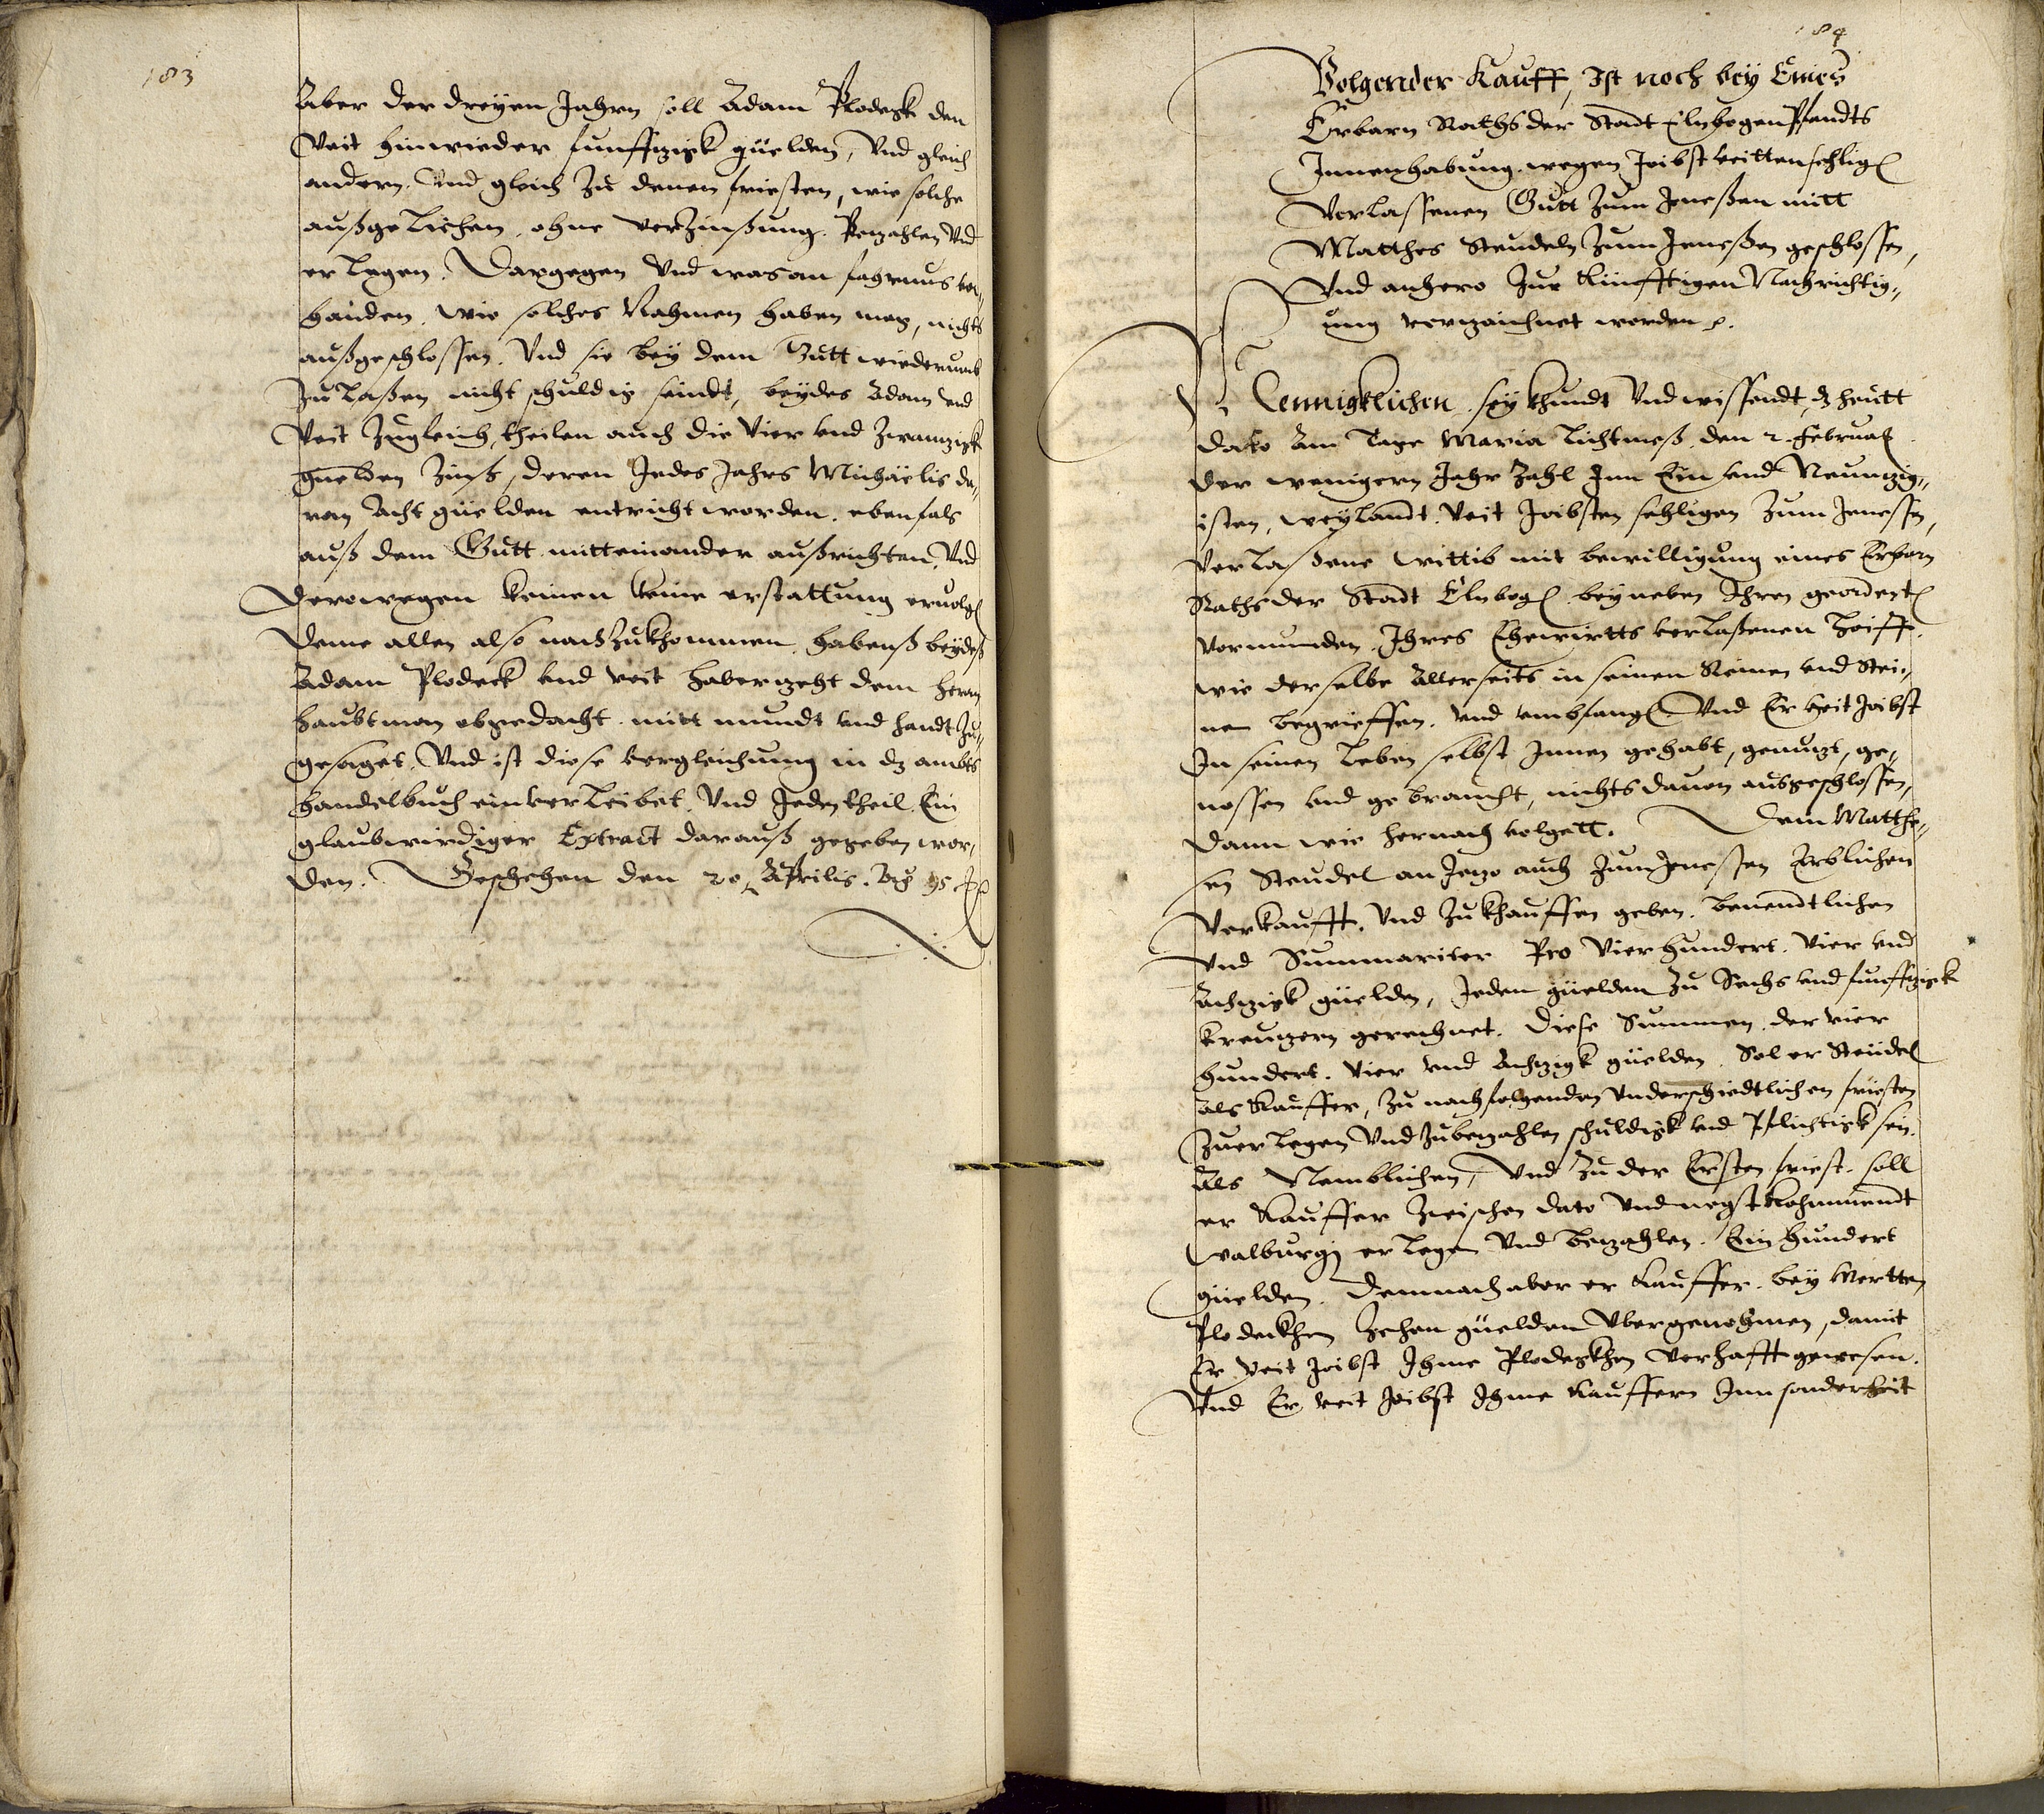 183
Aber der dreyen Jahrn soll Adam Plodegk den
Veit hinwieder funffzigk guelden, Vnd gleich
andern. Vnd gleich zu denen friesten, wie solche
außgelichen, ohne verzinßung. Bezahlen Vnd
erlegen. Dargegen Vnd was an fahrnus vor-
handen, wie solches Nahmen haben mag, nichts
außgeschlossen. Vnd sie bey dem Gutt wiederumb
zulaßen nicht schuldig seindt, beydes Adam vnd
Veit zugleich, theilen auch die Vier vnd zwanzigk
guelden Zinß, deren Jedes Jahrs Michaelis da-
von Acht guelden entricht worden, ebenfals
auß dem Gutt mitteinander außrichten, Vnd
Derowegen keinen keine erstattung eruolgen
Deme allen also nachzukhommen, habenß beydeß
Adam Plodeck vnd Veit Haberzeht dem herrn
haubtman obgedacht mitt mundt vnd handt zu-
gesaget. Vnd ist diese vergleichung in dz ambts
handelbuch einverleibet. Vnd Jeden theil Ein
glaubwirdiger Extract darauß gegeben wor-
den. Geschehen den 20 Aprilis. Ao 95
184
Volgender Kauff, Ist noch bey Eines
Erbarn Raths der Stadt Elnbogen Pfandts
Innenhabung wegen Veitten sehligen
Verlassenen Gutt zum Jenessen mitt
Matthes Steudeln zum Jenessen geschlossen,
Vnd anhero zur Künfftigen Nachrichtig-
ung verzaichnet worden.
Mennigklichen sey khundt Vnd wissendt, dz heutt
dato Am Tage Maria Lichtmeß den 2. Februarij
der wenigern Jahr Zahl Im Ein vnd Neunzig-
isten, weylandt Veit Joibsten sehligen zum Jenessen,
Verlaßene Wittib mit bewilligung eines Erbarn
Raths der Stadt Elnbogen beyneben Ihren geordenten
vormunden, Ihres Ehewirtts verlaßenen Hoff,
wie derselbe Allerseits in seinen Reinen vnd Stei-
nen begrieffen, vnd vmbfangen Vnd Er Veit Joibst
In seinen Leben selbst Innen gehabt, genutzt, ge-
nossen vnd gebraucht, nichts dauon ausgeschlossen,
Dann wie hernach volgett. Dem Matthe-
sen Steudel an Jezo auch zum Jenessen Erblichen
Verkaufft, Vnd zukhauffen geben, benendtlichen
Vnd Summariter Pro Vierhundert Vier vnd
Achzigk guelden, Jeden guelden zu Sechs vnd funffzigk
kreuzern gerechnet. Diese Summen der vier
hundert Vier vnd Achzigk guelden Sol er Steudel
als Kauffer, zu nachfolgenden Vnderschiedtlichen friesten
Zuerlegen Vnd zubezahlen schuldigk vnd Pflichtigk sein.
Als Nemblichen, Vnd zu der Ersten friest soll
er Kauffer zwischen dato Vnd negst kohmmendt
Walburgi erlegen Vnd bezahlen Ein hundert
guelden. Demnach aber er Kauffer bey Mertten
Plodeckhen zehen guelden Vbergenohmen, damit
Er Veit Joibst Ihme Plodegkhen Verhafft gewesen.
Vnd Er Veit Joibst Ihme Kauffern Inn sonderheit